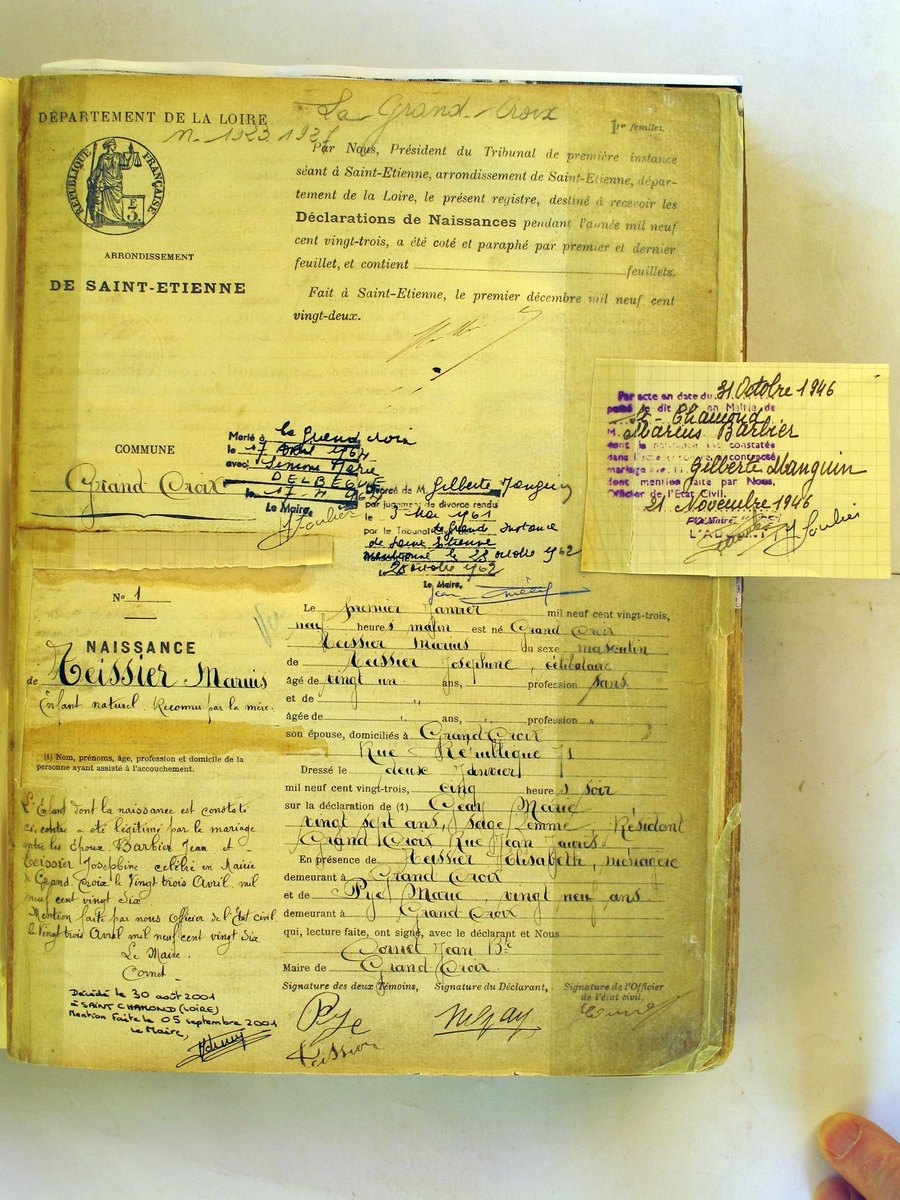 La Grand-Croix
DÉPARTEMENT DE LA LOIRE
N- 1923. 1927
1er feuillet.
RÉPUBLIQUE FRANÇAISE
E 3
Par Nous, Président du Tribunal de première instance
séant à Saint-Etienne, arrondissement de Saint-Etienne, dépar-
tement de la Loire, le présent registre, destiné à recevoir les
Déclarations de Naissances pendant l'année mil neuf
cent vingt-trois, a été coté et paraphé par premier et dernier
feuillet, et contient feuillets.
Fait à Saint-Etienne, le premier décembre mil neuf cent
vingt-deux.
ARRONDISSEMENT
DE SAINT-ETIENNE
COMMUNE
Grand Croix
Marié à la Grand croix
le 17 Avril 1967
avec Simone Marie
DELBEGUE
le 17. 4 1967
Le Maire,
Divorcé de M. Gilberte Manguin
par jugement de divorce rendu
le Mai 1961
par le Tribunal de Grande instance
de Saint Etienne
mentionné le 28 octobre 1962
28 octobre 1962
Le Maire,
Par acte en date du 31 Octobre 1946
St-Chamond
M. Marius Barbier
dont la naissance est constatée
dans l'acte a contracté
mariage avec Gilberte Manguin
dont mention faite par Nous,
Officier de l'Etat Civil.
21. Novembre 1946
N° 1
NAISSANCE
de Teissier Marius
Enfant naturel. Reconnu par la mère.
(1) Nom, prénoms, âge, profession et domicile de la
personne ayant assisté à l'accouchement.
L'Enfant dont la naissance est constaté
ci-contre a été légitimé par le mariage
entre les époux Barbier Jean et
Teissier Josephine célébré en Mairie
de Grand Croix le Vingt trois Avril mil
neuf cent vingt six
Mention faite par nous Officier de l'Etat civil.
le Vingt trois Avril mil neuf cent vingt six
Le Maire.
Cornet
Décédé le 30 août 2001
à SAINT CHAMOND (LOIRE)
Mention faite le 05 septembre 2001
Le Maire,
Le premier Janvier mil neuf cent vingt-trois,
neuf heures matin est né Grand Croix
Teissier Marius du sexe masculin
de Teissier Josephine, célibataire
âgé de vingt un ans, profession sans.
et de "
âgée de " ans, " profession "
son épouse, domiciliés à Grand Croix
Rue République 71
Dressé le deux Janvier
mil neuf cent vingt-trois, cinq heures soir
sur la déclaration de (1) Marie
vingt sept ans, sage femme. Résidant
Grand Croix Rue Jean Jaurès
En présence de Teissier Elisabeth, ménagère
demeurant à Grand Croix
et de Pye Marie, vingt neuf ans.
demeurant à Grand Croix
qui, lecture faite, ont signé, avec le déclarant et Nous
Cornet Jean Bte
Maire de Grand Croix.
Signature des deux Témoins, Signature du Déclarant, Signature de l'Officier
de l'état civil,
Pye
Teissier